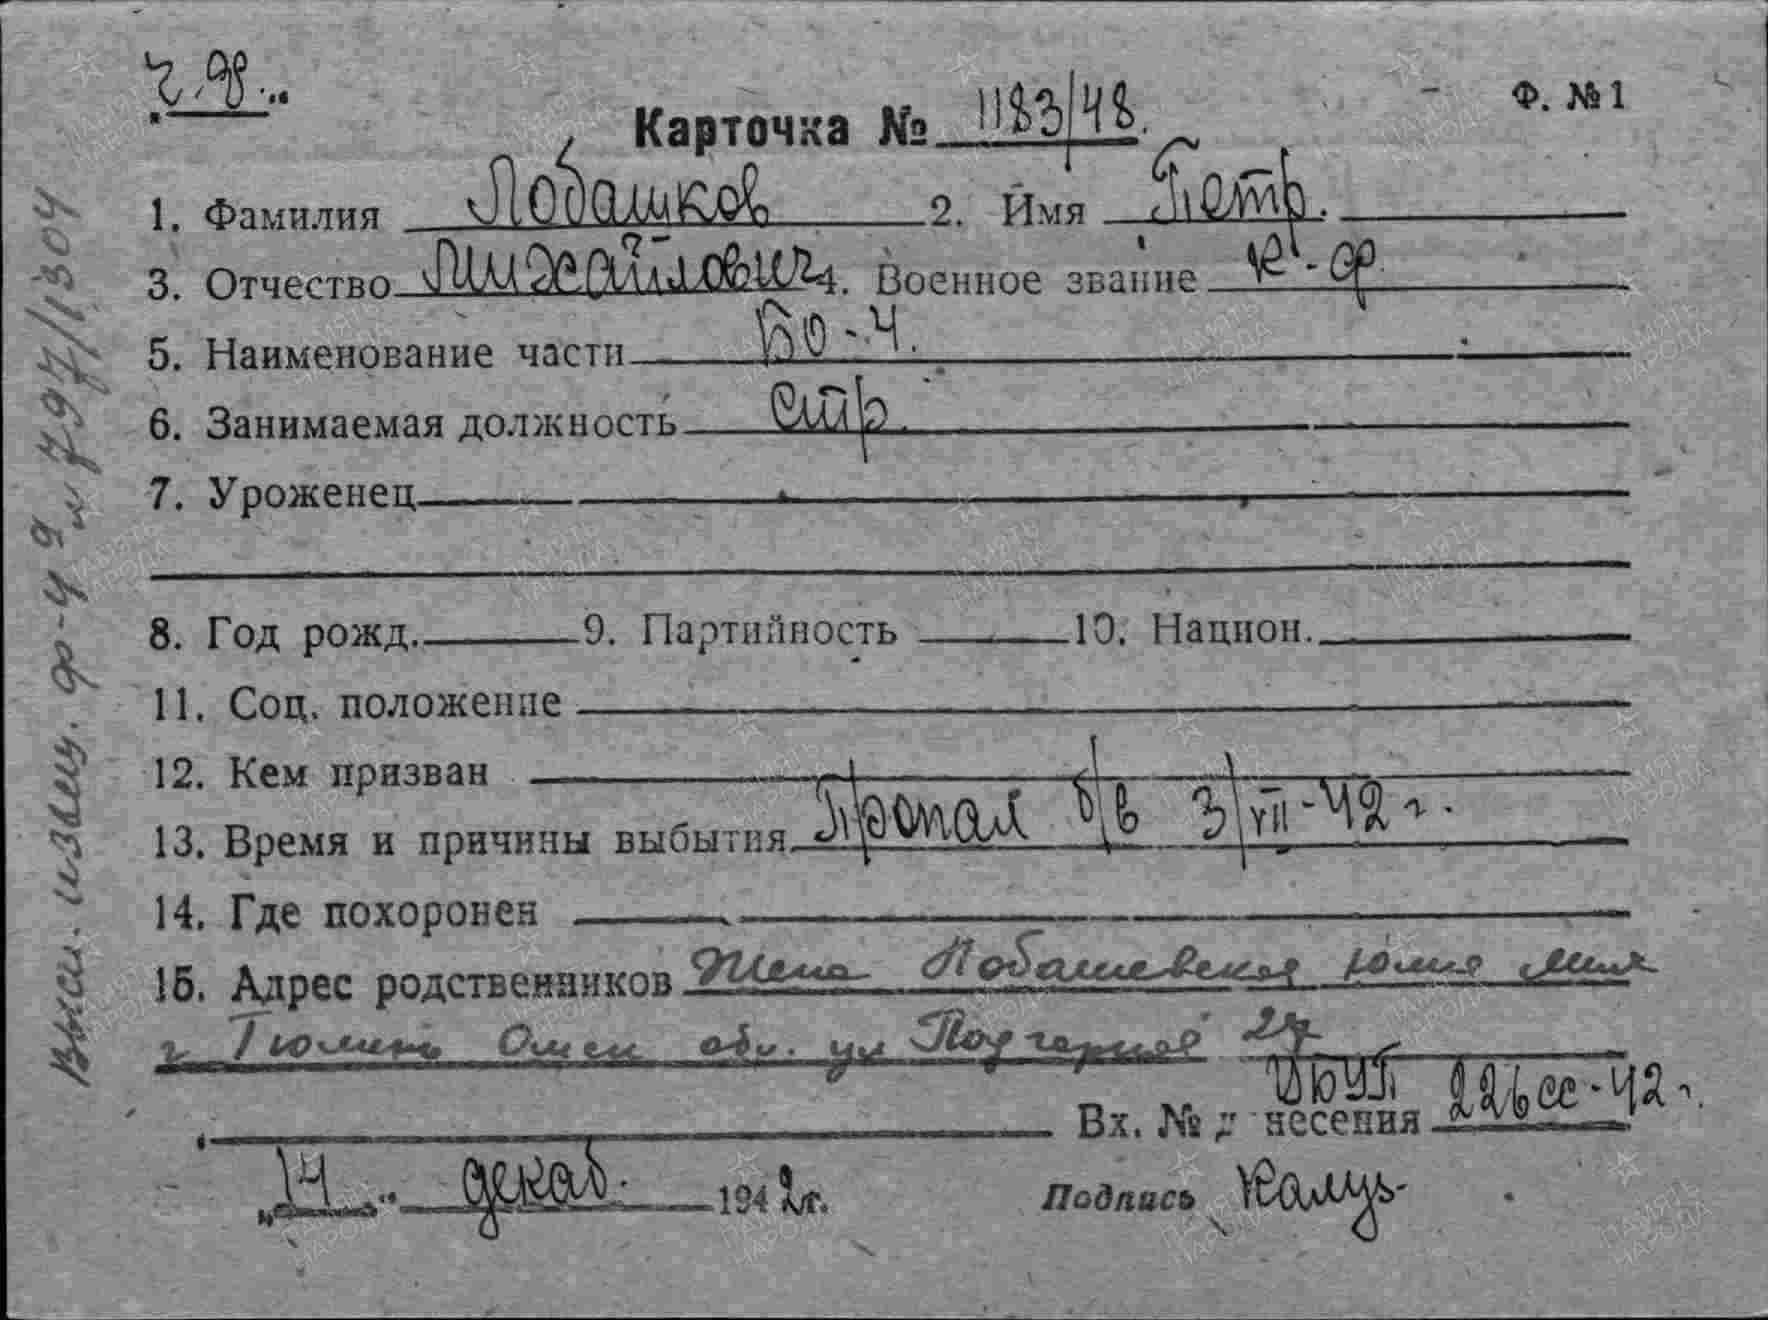 Ф. № 1
Карточка № 1183/48.
1. Фамилия Лобашков 2. Имя Петр.
3. Отчество Михайлович 4. Военное звание кр-ар
5. Наименование части
6. Занимаемая должность стр.
7. Уроженец
8. Год рожд. 9. Партийность 10. Национ.
11. Соц. положение
12. Кем призван
13. Время и причины выбытия Пропал б/в 3/VII-42 г.
14. Где похоронен
15. Адрес родственников Жена Лобашкова Юлия Мих
г Тюмень Омск обл. ул 27
Вх. № донесения 22 дек-42 г.
"14" декаб. 1942 г. Подпись